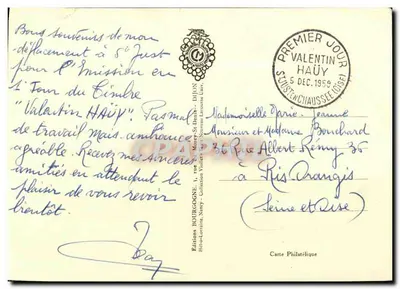 Bons souvenirs de mon
déplacement à St Just
pour l'Emission en
1er Jour du Timbre
"Valentin HAÜY". Pas mal
de travail mais ambiance
agréable. Recevez mes sincères
amitiés en attendant le
plaisir de vous revoir
bientôt.
PREMIER JOUR
VALENTIN
HAÜY
5 DEC. 1959
ST JUST-EN-CHAUSSEE (OISE)
Mademoiselle Marie-Jeanne
Monsieur et Madame Bouchard
36 Rue Albert Rémy 36
à Ris Orangis
(Seine et Oise)
Editions BOURGOGNE, DIJON
Carte Philatélique